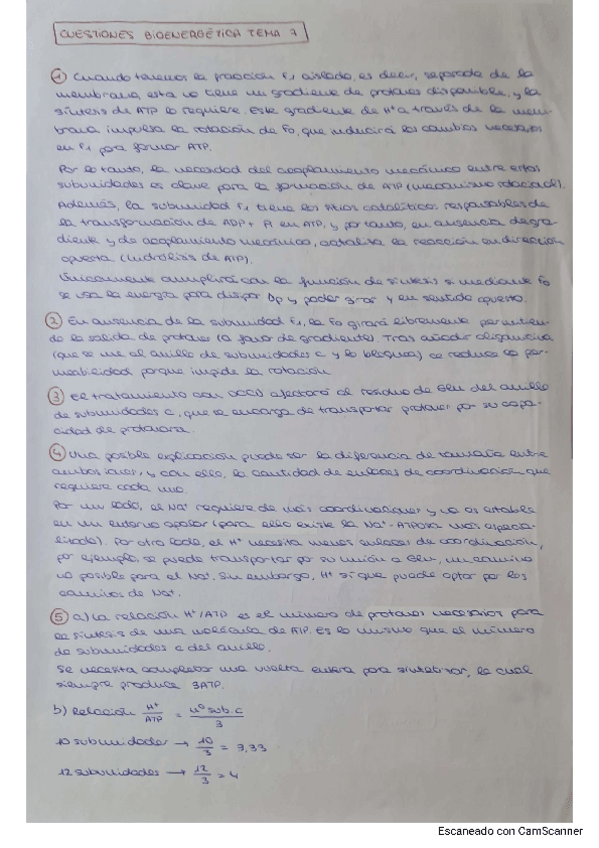 CUESTIONES BIOENERGÉTICA TEMA 7
① Cuando tenemos la fracción F₁ aislada, es decir, separada de la
membrana, esta no tiene un gradiente de protones disponible, y la
síntesis de ATP lo requiere. Este gradiente de H+ a través de la mem-
brana impulsa la rotación de F₀, que inducirá los cambios necesarios
en F₁ para formar ATP.
Por lo tanto, la necesidad del acoplamiento mecánico entre estas
subunidades es clave para la formación de ATP (mecanismo rotacional).
Además, la subunidad F₁ tiene los sitios catalíticos responsables de
la transformación de ADP + Pi en ATP, y por tanto, en ausencia de gra-
diente y de acoplamiento mecánico, cataliza la reacción en dirección
opuesta (hidrólisis de ATP).
Únicamente cumplirá con la función de síntesis si mediante F₀
se usa la energía para disipar Δp y poder girar y en sentido opuesto.
② En ausencia de la subunidad F₁, la F₀ girará libremente permitien-
do la salida de protones (a favor de gradiente). Tras añadir oligomicina
(que se une al anillo de subunidades c y lo bloquea) se reduce la per-
meabilidad porque impide la rotación.
③ El tratamiento con DCCD afectará al residuo de Glu del anillo
de subunidades c, que se encarga de transportar protones por su capa-
cidad de protonarse.
④ Una posible explicación puede ser la diferencia de tamaño entre
ambos iones, y con ello, la cantidad de enlaces de coordinación que
requiere cada uno.
Por un lado, el Na+ requiere de más coordinaciones y no es estable
en un entorno apolar (para ello existe la Na+-ATPasa más especia-
lizada). Por otro lado, el H+ necesita menos enlaces de coordinación,
por ejemplo, se puede transportar por su unión a Glu, un camino
no posible para el Na+. Sin embargo, H+ sí que puede optar por los
caminos de Na+.
⑤ a) La relación H+/ATP es el número de protones necesarios para
la síntesis de una molécula de ATP. Es lo mismo que el número
de subunidades c del anillo.
Se necesita completar una vuelta entera para sintetizar, la cual
siempre produce 3ATP.
b) Relación H+/ATP = nº sub.c/3
10 subunidades → 10/3 = 3,33
12 subunidades → 12/3 = 4
Escaneado con CamScanner